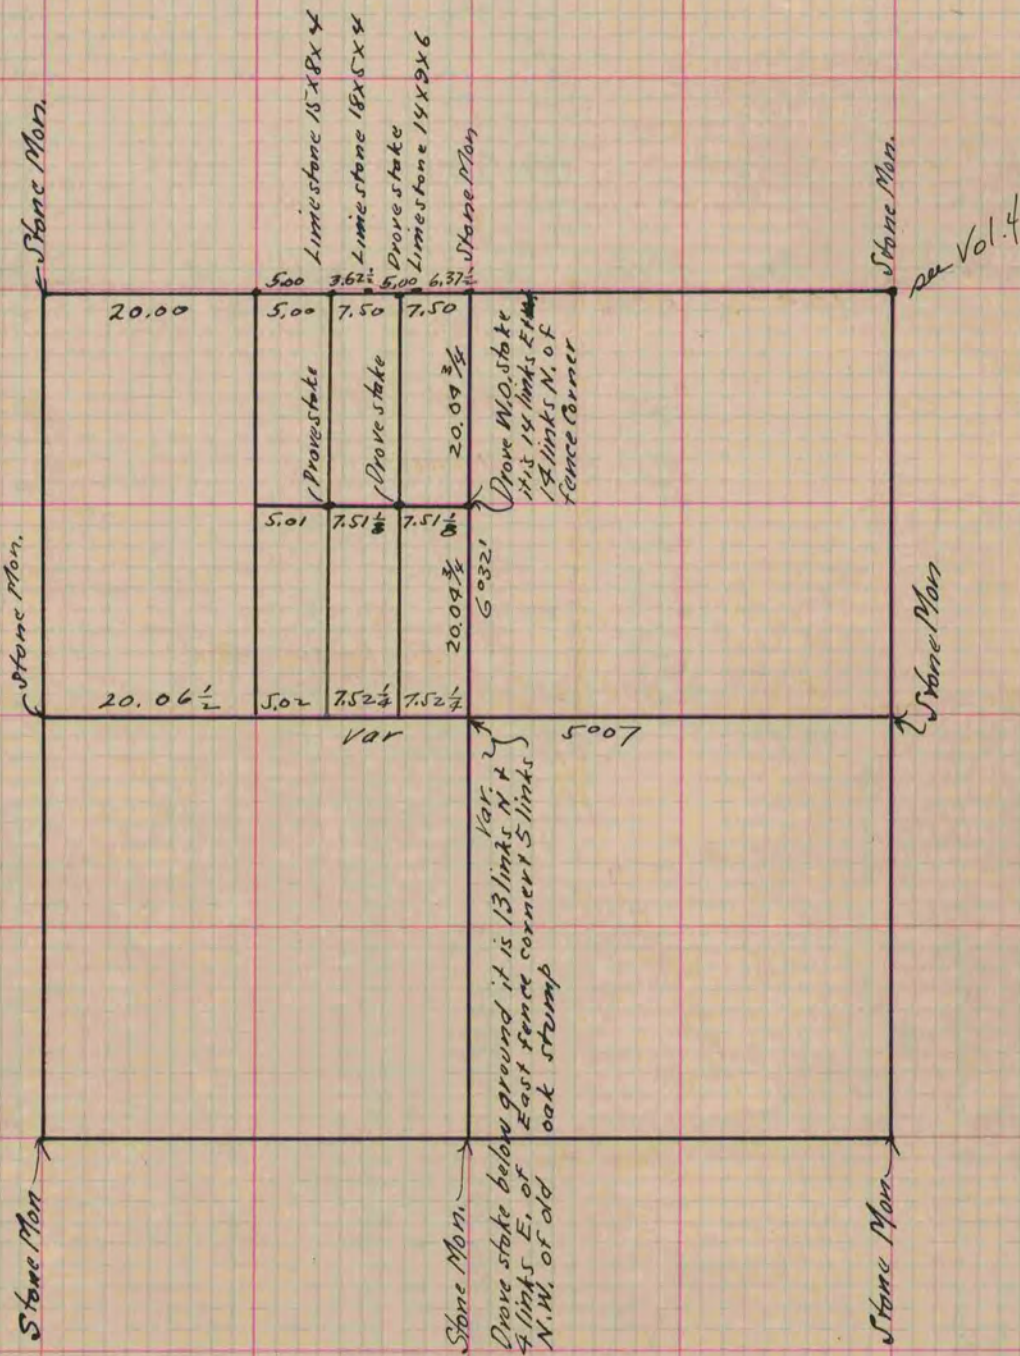 Stone Mon.
Limestone 15x8x4
Limestone 18x5x4
Drove stake
Limestone 14x9x6
Stone Mon
Stone Mon.
see Vol. 4
5.00 3.62½ 5.00 6.37½
20.00 5.00 7.50 7.50
Drove stake
Drove stake
20.04¾
Drove W.O. stake
it is 14 links E
14 links N. of
fence corner
5.01 7.51⅛ 7.51⅛
Stone Mon.
20.04¾
6°32'
20.06½ 5.02 7.52¼ 7.52¼
Var
5°07
Stone Mon
Var.
Drove stake below ground it is 13 links N +
4 links E. of East fence corner + 5 links
N.W. of old oak stump
Stone Mon
Stone Mon.
Stone Mon